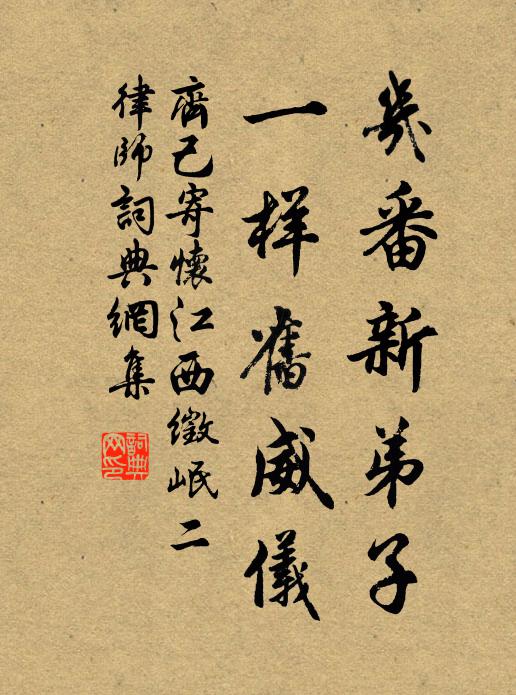 幾番新弟子
一样舊威儀
齊己寄懷江西徵岷二
律師詞典網集
詞典网印